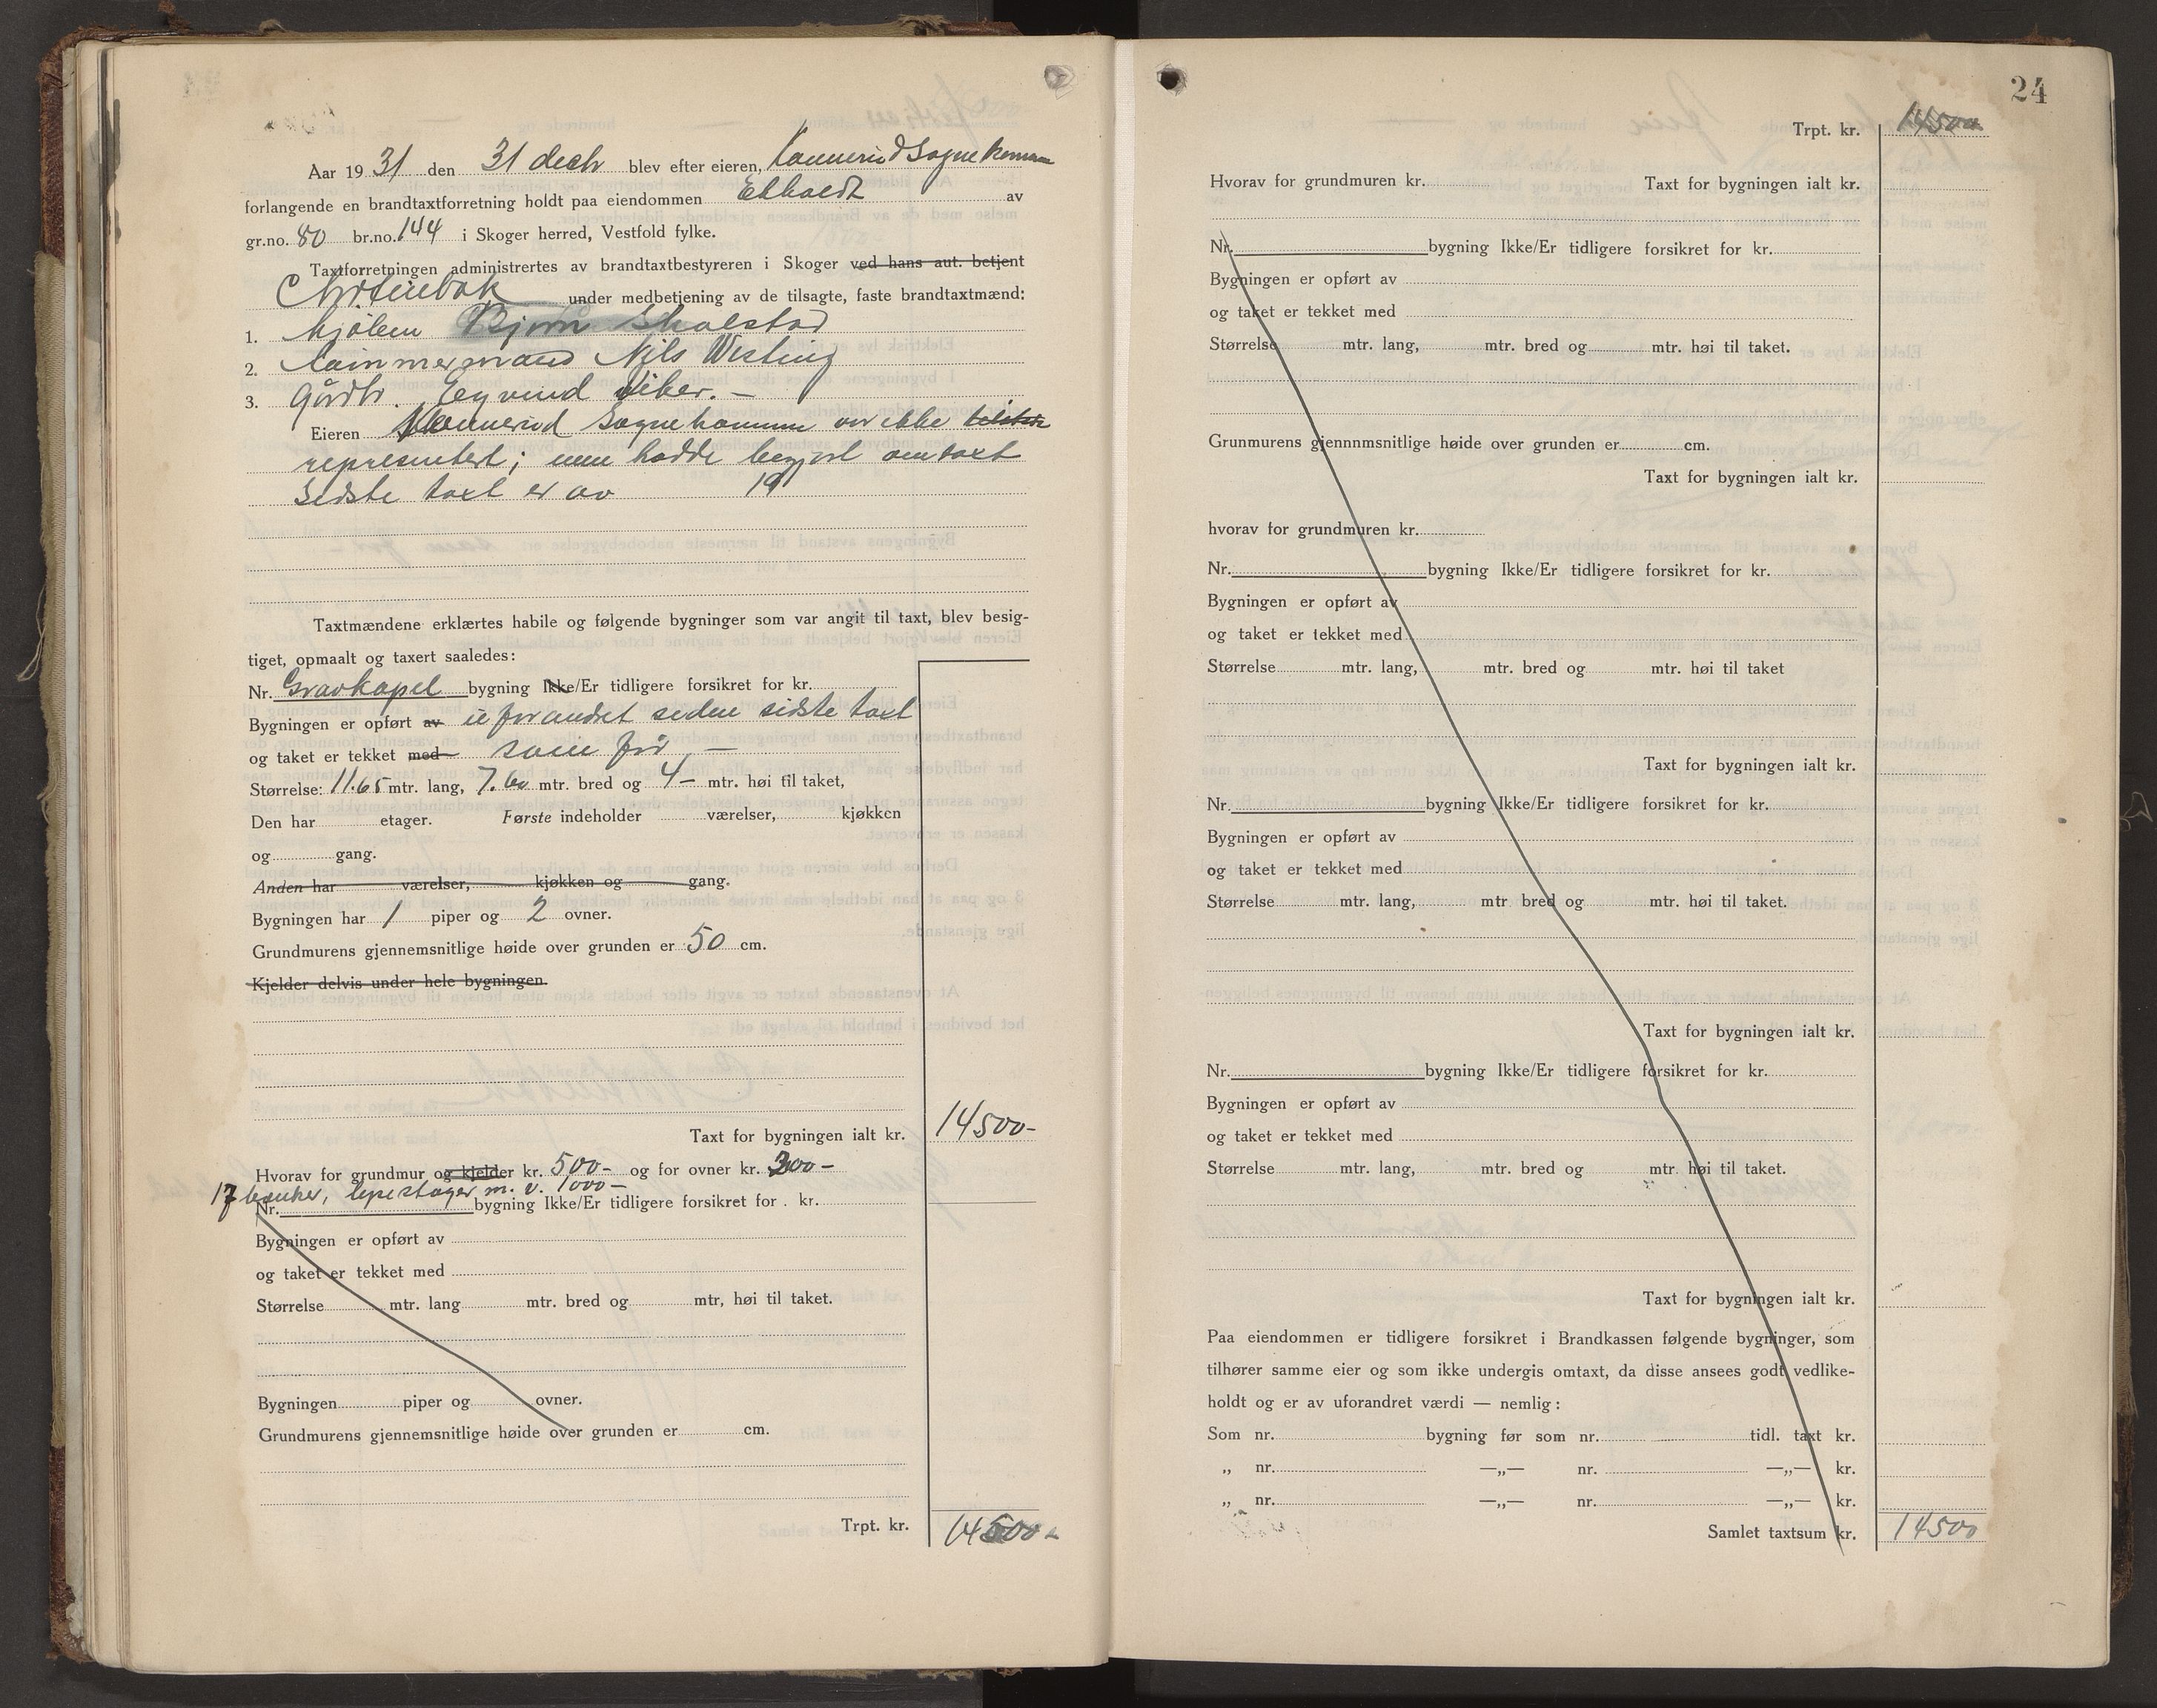 Aar 1931 den 31 decb blev efter eieren, Konnerud Sogns kommune
forlangende en brandtaxtforretning holdt paa eiendommen Ekholdt av
gr.no. 80 br.no. 144 i Skoger herred, Vestfold fylke.
Taxtforretningen administrertes av brandtaxtbestyreren i Skoger ved hans aut. betjent
under medbetjening av de tilsagte, faste brandtaxtmænd:
1. Bjørn Skalstad
2. Nils Westing
3. Gårdbr. Eyvind Wiker. —
Eieren Konnerud Sognekommune var ikke
representert; men hadde begjært omtaxt
Sidste taxt er av 19
Taxtmændene erklærtes habile og følgende bygninger som var angit til taxt, blev besig-
tiget, opmaalt og taxert saaledes:
Nr. Gravkapel bygning Ikke/Er tidligere forsikret for kr.
Bygningen er opført av uforandret siden sidste taxt
og taket er tekket med som før —
Størrelse: 11.65 mtr. lang, 7.60 mtr. bred og 4 – mtr. høi til taket,
Den har etager. Første indeholder værelser, kjøkken
og gang.
Anden har værelser, kjøkken og gang.
Bygningen har 1 piper og 2 ovner.
Grundmurens gjennemsnitlige høide over grunden er 50 cm.
Kjelder delvis under hele bygningen
Taxt for bygningen ialt kr. 14500-
Hvorav for grundmur og kjelder kr. 500- og for ovner kr. 300-
17 benker, lysestager m. v. 1000-
Nr. bygning Ikke/Er tidligere forsikret for . kr.
Bygningen er opført av
og taket er tekket med
Størrelse mtr. lang mtr. bred og mtr, høi til taket.
Bygningen piper og ovner.
Grundmurens gjennemsnitlige høide over grunden er cm.
Trpt. kr. 14500-
24
Trpt. kr. 14500
Hvorav for grundmuren kr. Taxt for bygningen ialt kr.
Nr. bygning Ikke/Er tidligere forsikret for kr.
Bygningen er opført av
og taket er tekket med
Størrelse mtr. lang, mtr. bred og mtr. høi til taket.
Grunmurens gjennnmsnitlige høide over grunden er cm.
Taxt for bygningen ialt kr.
hvorav for grundmuren kr.
Nr. bygning Ikke/Er tidligere forsikret for kr.
Bygningen er opført av
og taket er tekket med
Størrelse mtr. lang, mtr. bred og mtr. høi til taket
Taxt for bygningen ialt kr.
Nr. bygning Ikke/Er tidligere forsikret for kr.
Bygningen er opført av
og taket er tekket med
Størrelse mtr. lang, mtr bred og mtr. høi til taket.
Taxt for bygningen ialt kr.
Nr. bygning Ikke/Er tidligere forsikret for kr.
Bygningen er opført av
og taket er tekket med
Størrelse mtr. lang, mtr. bred og mtr. høi til taket.
Taxt for bygningen ialt kr.
Paa eiendommen er tidligere forsikret i Brandkassen følgende bygninger, som
tilhører samme eier og som ikke undergis omtaxt, da disse ansees godt vedlike-
holdt og er av uforandret værdi — nemlig :
Som nr. bygning før som nr. tidl. taxt kr.
„ nr. —„— nr. —„— kr.
„ nr. —„— nr. —„— kr.
Samlet taxtsum kr. 14500